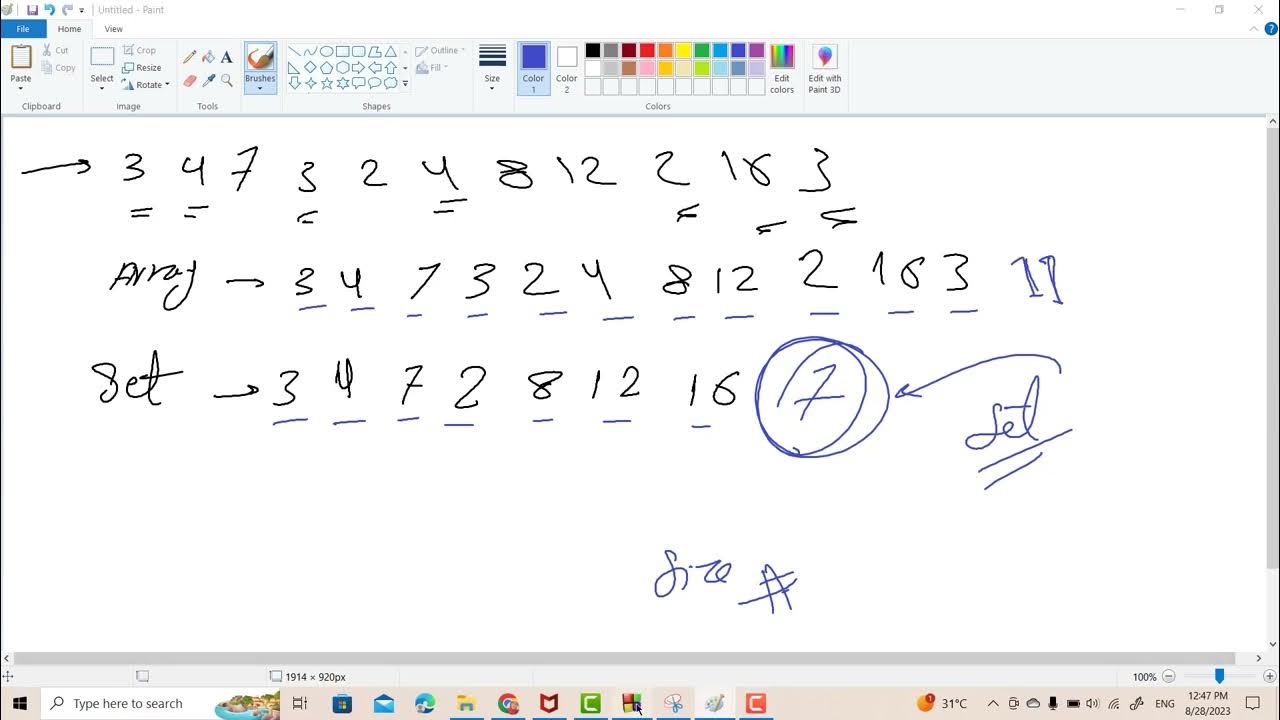 Untitled - Paint
File Home View
Paste Cut Copy Select Crop Resize Rotate Brushes Outline Fill Size Color 1 Color 2 Edit colors Edit with Paint 3D
Clipboard Image Tools Shapes Colors
3 4 7 3 2 4 8 12 2 16 3
Array → 3 4 7 3 2 4 8 12 2 16 3 11
Set → 3 4 7 2 8 12 16 7
Set
Size
1914 × 920px 100%
Type here to search 31°C ENG 12:47 PM
8/28/2023